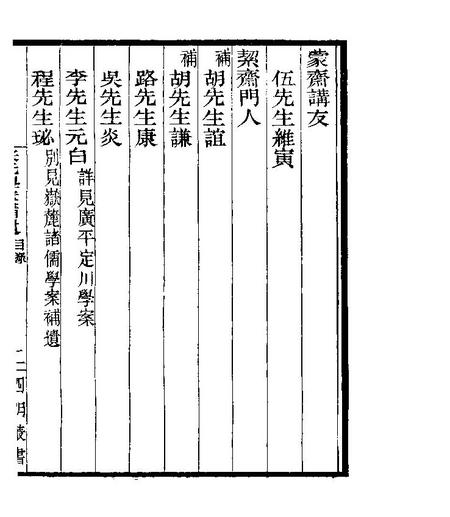 蒙齋講友
伍先生維寅
絜齋門人
補 胡先生誼
補 胡先生謙
路先生康
吳先生炎
李先生元白 詳見廣平定川學案
程先生珌 別見嶽麓諸儒學案補遺
目錄
二四明叢書